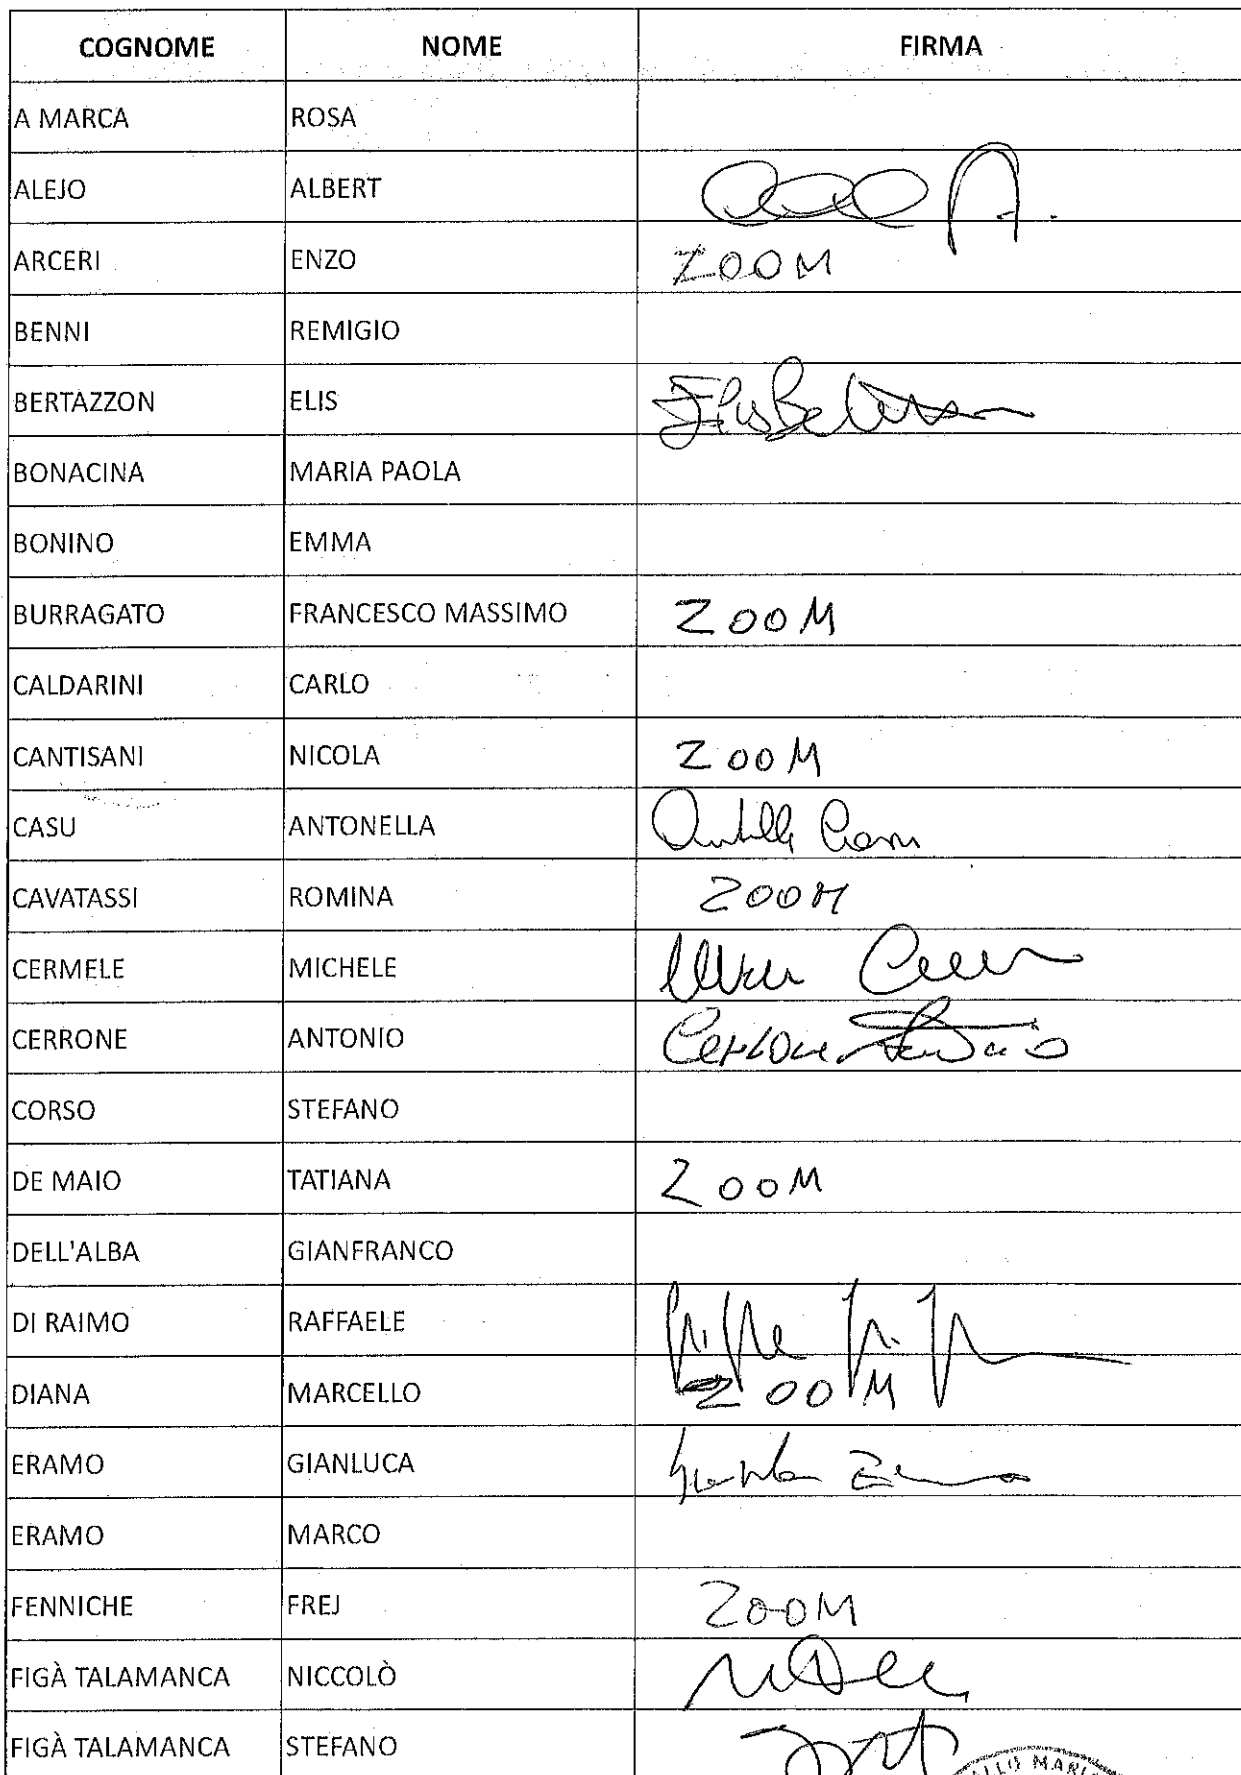 COGNOME NOME FIRMA
A MARCA ROSA
ALEJO ALBERT
ARCERI ENZO ZOOM
BENNI REMIGIO
BERTAZZON ELIS Elis Bertazzon
BONACINA MARIA PAOLA
BONINO EMMA
BURRAGATO FRANCESCO MASSIMO ZOOM
CALDARINI CARLO
CANTISANI NICOLA ZOOM
CASU ANTONELLA Antonella Casu
CAVATASSI ROMINA ZOOM
CERMELE MICHELE
CERRONE ANTONIO Cerrone Antonio
CORSO STEFANO
DE MAIO TATIANA ZOOM
DELL'ALBA GIANFRANCO
DI RAIMO RAFFAELE
DIANA MARCELLO ZOOM
ERAMO GIANLUCA
ERAMO MARCO
FENNICHE FREJ ZOOM
FIGÀ TALAMANCA NICCOLÒ
FIGÀ TALAMANCA STEFANO